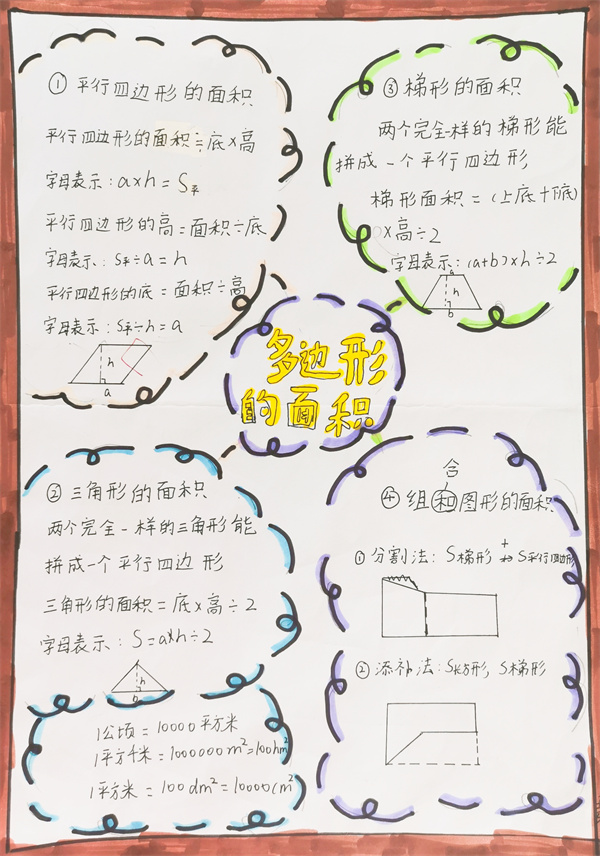 多边形
的面积
① 平行四边形的面积
平行四边形的面积=底×高
字母表示:a×h=S平
平行四边形的高=面积÷底
字母表示:S平÷a=h
平行四边形的底=面积÷高
字母表示:S平÷h=a
h
a
③ 梯形的面积
两个完全一样的梯形能
拼成一个平行四边形
梯形面积=(上底+下底)
×高÷2
字母表示:(a+b)×h÷2
a
h
b
② 三角形的面积
两个完全一样的三角形能
拼成一个平行四边形
三角形的面积=底×高÷2
字母表示:S=a×h÷2
h
b
1公顷=10000平方米
1平方千米=1000000m²=100hm²
1平方米=100dm²=10000cm²
合
④ 组和图形的面积
① 分割法:S梯形 + S平行四边形
② 添补法:S长方形,S梯形